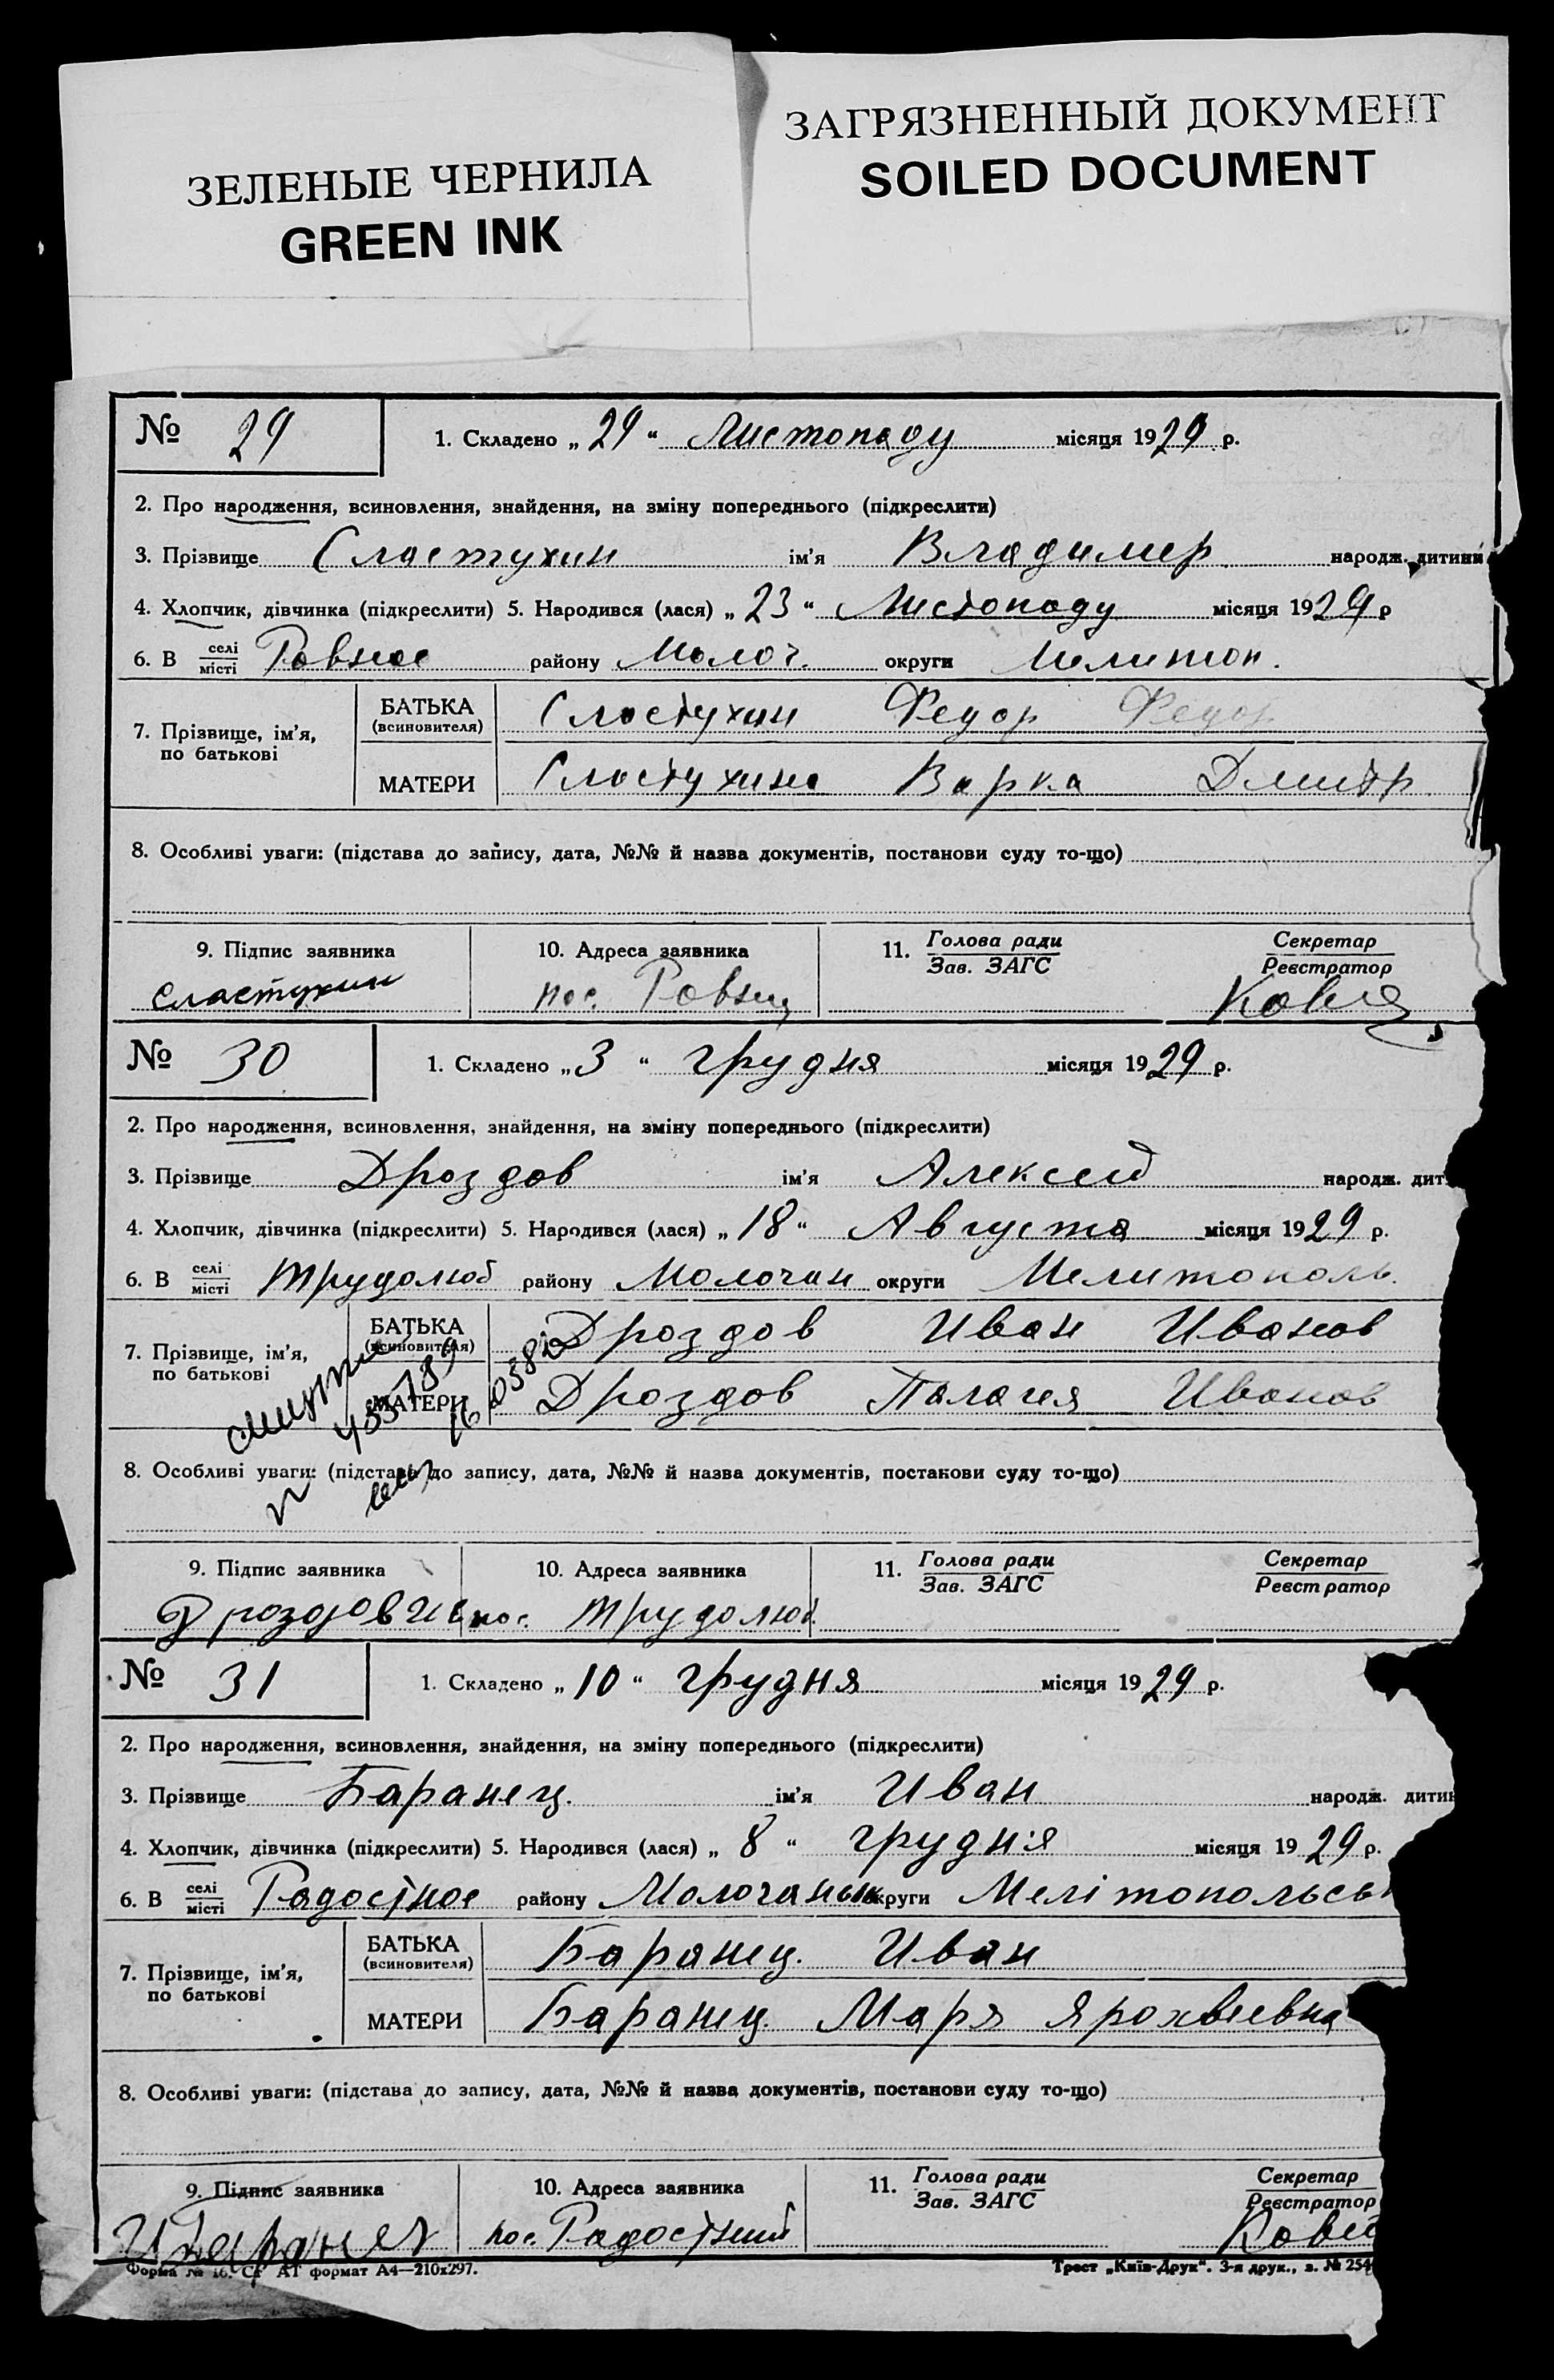 ЗЕЛЕНЫЕ ЧЕРНИЛА
GREEN INK
ЗАГРЯЗНЕННЫЙ ДОКУМЕНТ
SOILED DOCUMENT
№ 29 1. Складено „29“ Листопаду місяця 1929 р.
2. Про народження, всиновлення, знайдення, на зміну попереднього (підкреслити)
3. Прізвище Сластухин ім'я Владимер народж. дитини
4. Хлопчик, дівчинка (підкреслити) 5. Народився (лася) „23“ Листопаду місяця 1929 р
6. В селі/місті Ровное району Молоч. округи Мелитоп.
7. Прізвище, ім'я, по батькові БАТЬКА (всиновителя) Сластухин Федор Федор
МАТЕРИ Сластухина Варка Дмитр.
8. Особливі уваги: (підстава до запису, дата, №№ й назва документів, постанови суду то-що)
9. Підпис заявника 10. Адреса заявника 11. Голова ради/Зав. ЗАГС Секретар/Реєстратор
Сластухин пос. Ровный
№ 30 1. Складено „3“ грудня місяця 1929 р.
2. Про народження, всиновлення, знайдення, на зміну попереднього (підкреслити)
3. Прізвище Дроздов ім'я Алексей народж. дит
4. Хлопчик, дівчинка (підкреслити) 5. Народився (лася) „18“ Августа місяця 1929 р.
6. В селі/місті Трудолюб району Молочан округи Мелитополь.
7. Прізвище, ім'я, по батькові БАТЬКА (всиновителя) Дроздов Иван Иванов
МАТЕРИ Дроздов Палагея Иванов
8. Особливі уваги: (підстава до запису, дата, №№ й назва документів, постанови суду то-що)
9. Підпис заявника 10. Адреса заявника 11. Голова ради/Зав. ЗАГС Секретар/Реєстратор
Дроздов Ив пос. Трудолюб.
№ 31 1. Складено „10“ грудня місяця 1929 р.
2. Про народження, всиновлення, знайдення, на зміну попереднього (підкреслити)
3. Прізвище Баранец. ім'я Иван народж. дитин
4. Хлопчик, дівчинка (підкреслити) 5. Народився (лася) „8“ грудня місяця 1929 р.
6. В селі/місті Радостное району Молочанськ округи Мелітопольськ
7. Прізвище, ім'я, по батькові БАТЬКА (всиновителя) Баранец. Иван
МАТЕРИ Баранец. Маря Ярохвиевна
8. Особливі уваги: (підстава до запису, дата, №№ й назва документів, постанови суду то-що)
9. Підпис заявника 10. Адреса заявника 11. Голова ради/Зав. ЗАГС Секретар/Реєстратор
И Баранец пос. Радостный
Форма № 16. Ст АТ формат А4—210х297. Трест „Київ-Друк“. 3-я друк., з. № 254